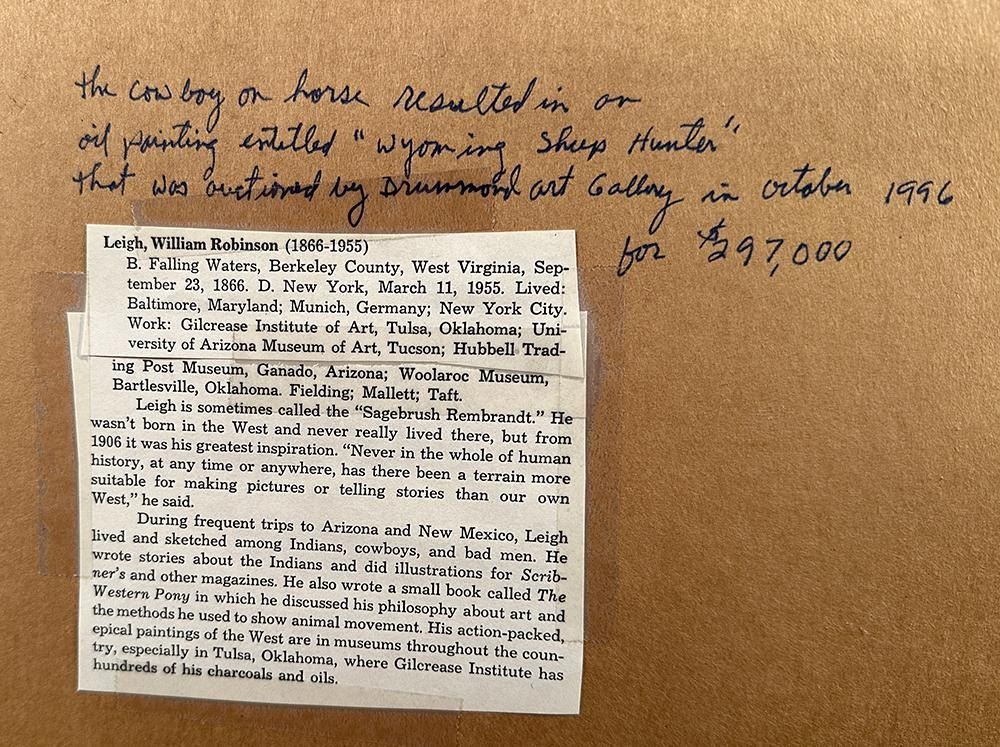 the cowboy on horse resulted in an
oil painting entitled "Wyoming Sheep Hunter"
that was auctioned by Drummond art Gallery in october 1996
for $297,000
Leigh, William Robinson (1866-1955)
B. Falling Waters, Berkeley County, West Virginia, Sep-
tember 23, 1866. D. New York, March 11, 1955. Lived:
Baltimore, Maryland; Munich, Germany; New York City.
Work: Gilcrease Institute of Art, Tulsa, Oklahoma; Uni-
versity of Arizona Museum of Art, Tucson; Hubbell Trad-
ing Post Museum, Ganado, Arizona; Woolaroc Museum,
Bartlesville, Oklahoma. Fielding; Mallett; Taft.
Leigh is sometimes called the "Sagebrush Rembrandt." He
wasn't born in the West and never really lived there, but from
1906 it was his greatest inspiration. "Never in the whole of human
history, at any time or anywhere, has there been a terrain more
suitable for making pictures or telling stories than our own
West," he said.
During frequent trips to Arizona and New Mexico, Leigh
lived and sketched among Indians, cowboys, and bad men. He
wrote stories about the Indians and did illustrations for Scrib-
ner's and other magazines. He also wrote a small book called The
Western Pony in which he discussed his philosophy about art and
the methods he used to show animal movement. His action-packed,
epical paintings of the West are in museums throughout the coun-
try, especially in Tulsa, Oklahoma, where Gilcrease Institute has
hundreds of his charcoals and oils.